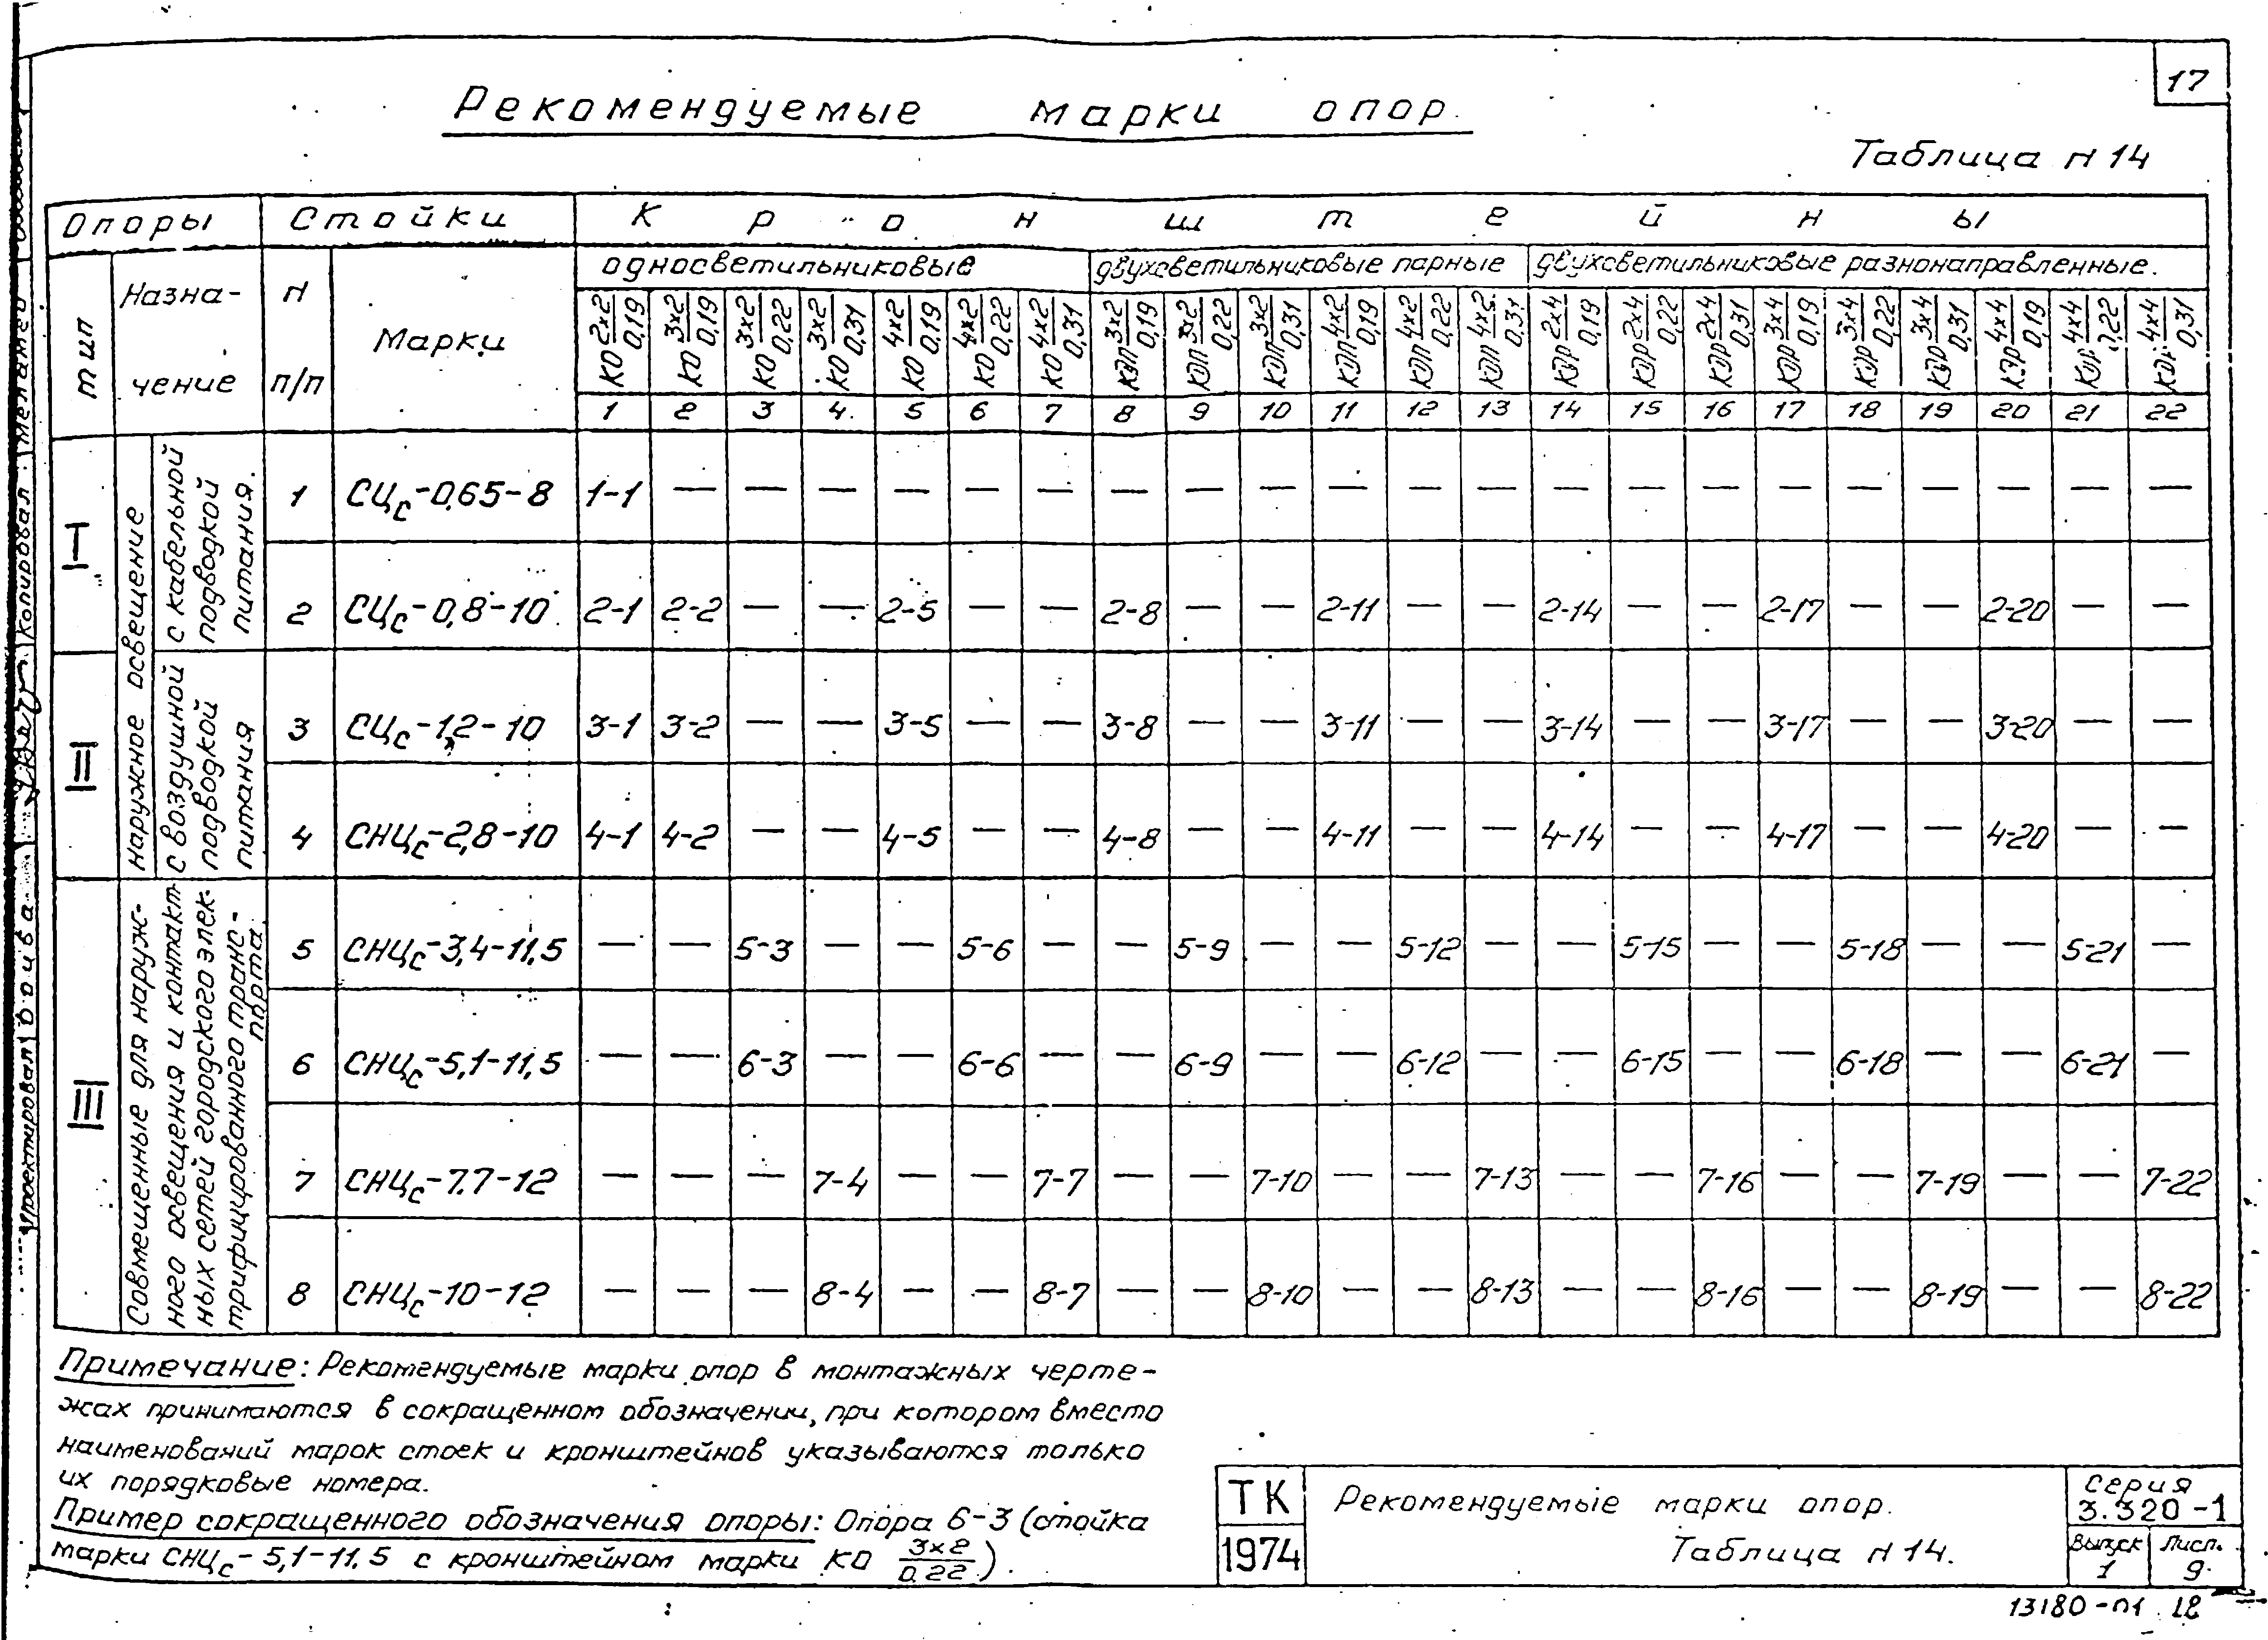 17
Рекомендуемые марки опор.
Таблица N 14
Опоры Стойки Кронштейны
тип Назна-чение N п/п Марки односветильниковые двухсветильниковые парные двухсветильниковые разнонаправленные.
КО 2х2/0,19 КО 3х2/0,19 КО 3х2/0,22 КО 3х2/0,31 КО 4х2/0,19 КО 4х2/0,22 КО 4х2/0,31 КДП 3х2/0,19 КДП 3х2/0,22 КДП 3х2/0,31 КДП 4х2/0,19 КДП 4х2/0,22 КДП 4х2/0,31 КДР 2х4/0,19 КДР 2х4/0,22 КДР 2х4/0,31 КДР 3х4/0,19 КДР 3х4/0,22 КДР 3х4/0,31 КДР 4х4/0,19 КДР 4х4/0,22 КДР 4х4/0,31
1 2 3 4 5 6 7 8 9 10 11 12 13 14 15 16 17 18 19 20 21 22
I
наружное освещение
с кабельной подводкой питания.
1 СЦс-0,65-8 1-1 — — — — — — — — — — — — — — — — — — — — —
2 СЦс-0,8-10 2-1 2-2 — — 2-5 — — 2-8 — — 2-11 — — 2-14 — — 2-17 — — 2-20 — —
II
с воздушной подводкой питания
3 СЦс-1,2-10 3-1 3-2 — — 3-5 — — 3-8 — — 3-11 — — 3-14 — — 3-17 — — 3-20 — —
4 СНЦс-2,8-10 4-1 4-2 — — 4-5 — — 4-8 — — 4-11 — — 4-14 — — 4-17 — — 4-20 — —
III
Совмещенные для наруж-
ного освещения и контакт
ных сетей городского элек-
трифицированного транс-
порта
5 СНЦс-3,4-11,5 — — 5-3 — — 5-6 — — 5-9 — — 5-12 — — 5-15 — — 5-18 — — 5-21 —
6 СНЦс-5,1-11,5 — — 6-3 — — 6-6 — — 6-9 — — 6-12 — — 6-15 — — 6-18 — — 6-21 —
7 СНЦс-7.7-12 — — — 7-4 — — 7-7 — — 7-10 — — 7-13 — — 7-16 — — 7-19 — — 7-22
8 СНЦс-10-12 — — — 8-4 — — 8-7 — — 8-10 — — 8-13 — — 8-16 — — 8-19 — — 8-22
Примечание: Рекомендуемые марки опор в монтажных черте-
жах принимаются в сокращенном обозначении, при котором вместо
наименований марок стоек и кронштейнов указываются только
их порядковые номера.
Пример сокращенного обозначения опоры: Опора 6-3 (стойка
марки СНЦс-5,1-11.5 с кронштейном марки КО 3х2/0.22).
ТК
1974
Рекомендуемые марки опор.
Таблица N 14.
Серия
3.320-1
Выпуск Лист.
1 9
13180-01 18
Проектировал
Копировал